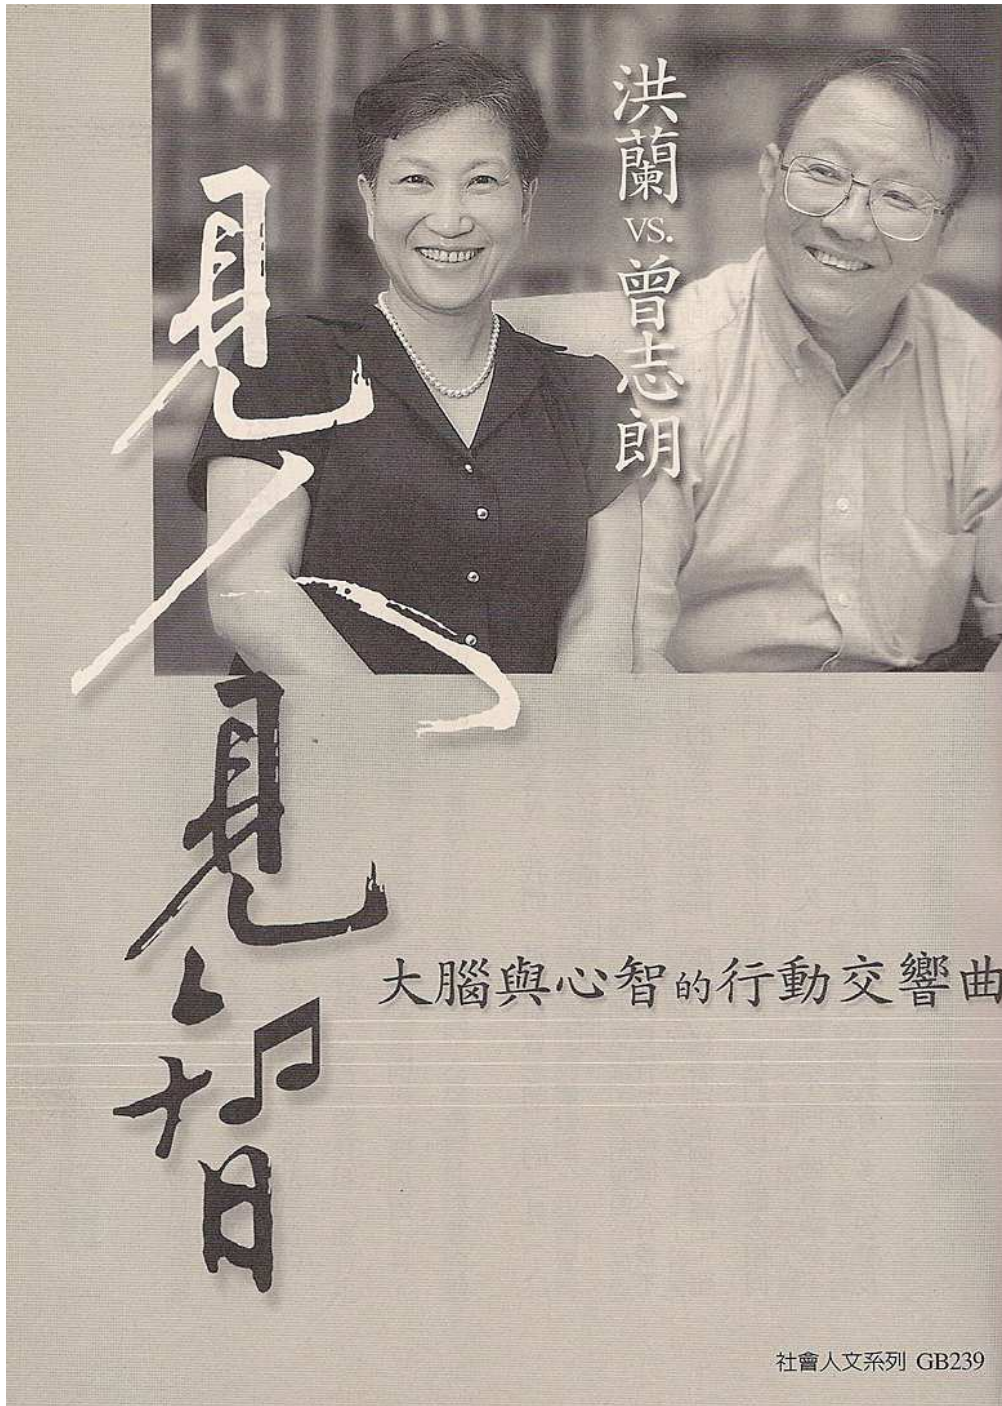 洪蘭 VS. 曾志朗
見人見智
大腦與心智的行動交響曲
社會人文系列 GB239